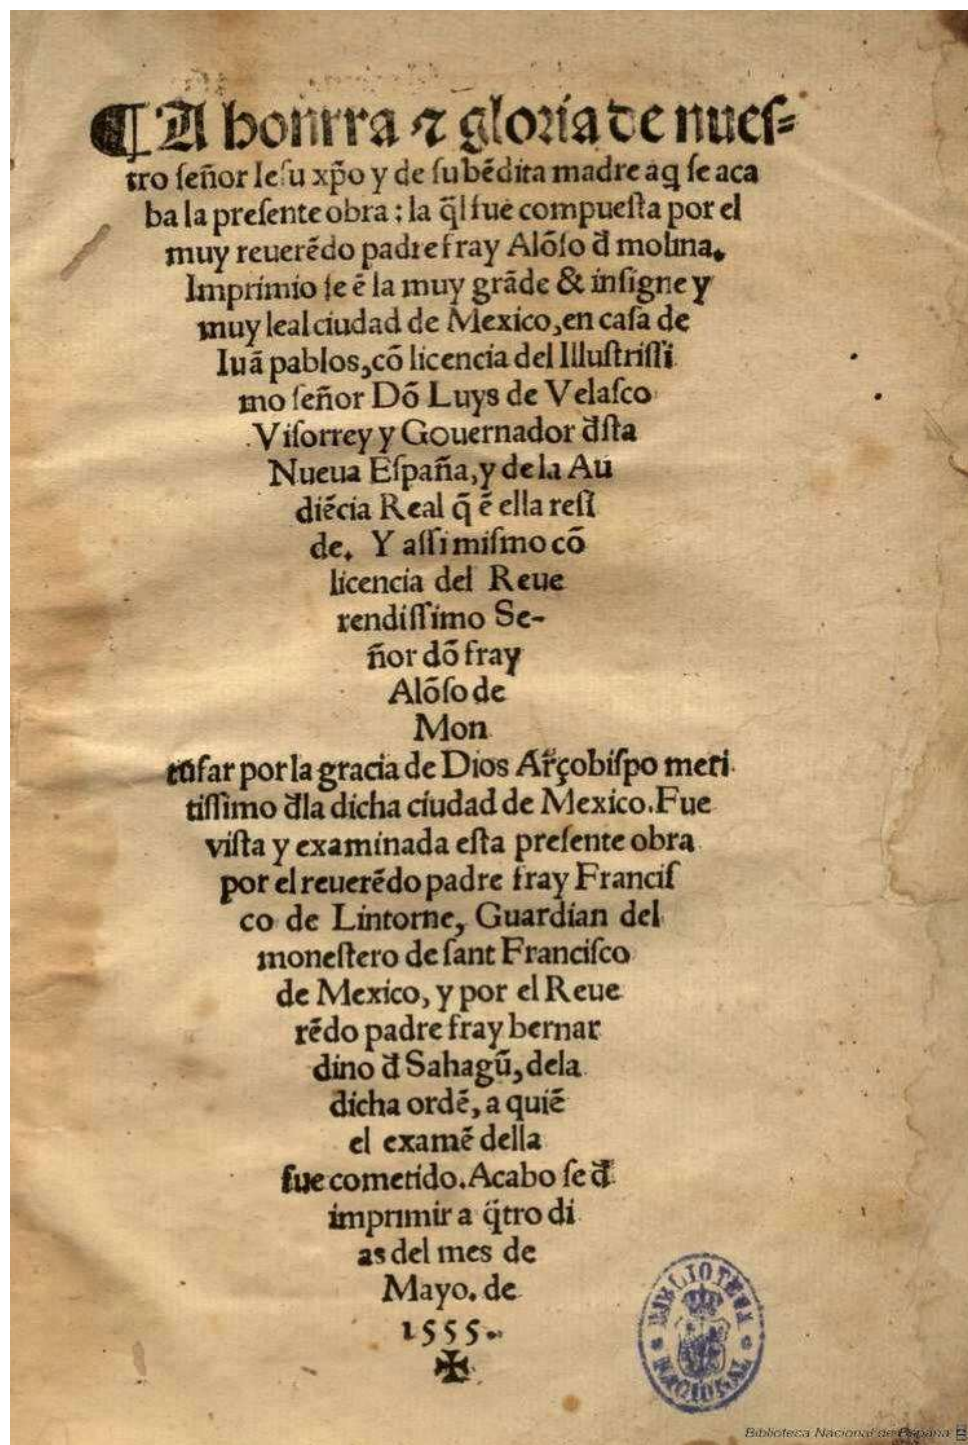 ¶A honrra ⁊ gloria de nueſ⸗
tro ſeñor Ieſu xp̄o y de ſu bēdita madre aq̄ ſe aca
ba la preſente obra : la q̄l fue compueſta por el
muy reuerēdo padre fray Alōſo đ molina.
Imprimio ſe ē la muy grāde & inſigne y
muy leal ciudad de Mexico, en caſa de
Iuā pablos, cō licencia del Illuſtriſſi
mo ſeñor Dō Luys de Velaſco
Viſorrey y Gouernador đſta
Nueua Eſpaña, y de la Au
diēcia Real q̄ ē ella reſi
de. Y aſſi miſmo cō
licencia del Reue
rendiſſimo Se-
ñor dō fray
Alōſo de
Mon
tufar por la gracia de Dios Arçobiſpo meri
tiſſimo đla dicha ciudad de Mexico. Fue
viſta y examinada eſta preſente obra
por el reuerēdo padre fray Franciſ
co de Lintorne, Guardian del
moneſtero de ſant Franciſco
de Mexico, y por el Reue
rēdo padre fray bernar
dino đ Sahagū, dela
dicha ordē, a quiē
el examē della
fue cometido. Acabo ſe đ
imprimir a q̄tro di
as del mes de
Mayo. de
1555.
✠
BIBLIOTECA
NACIONAL
Biblioteca Nacional de España